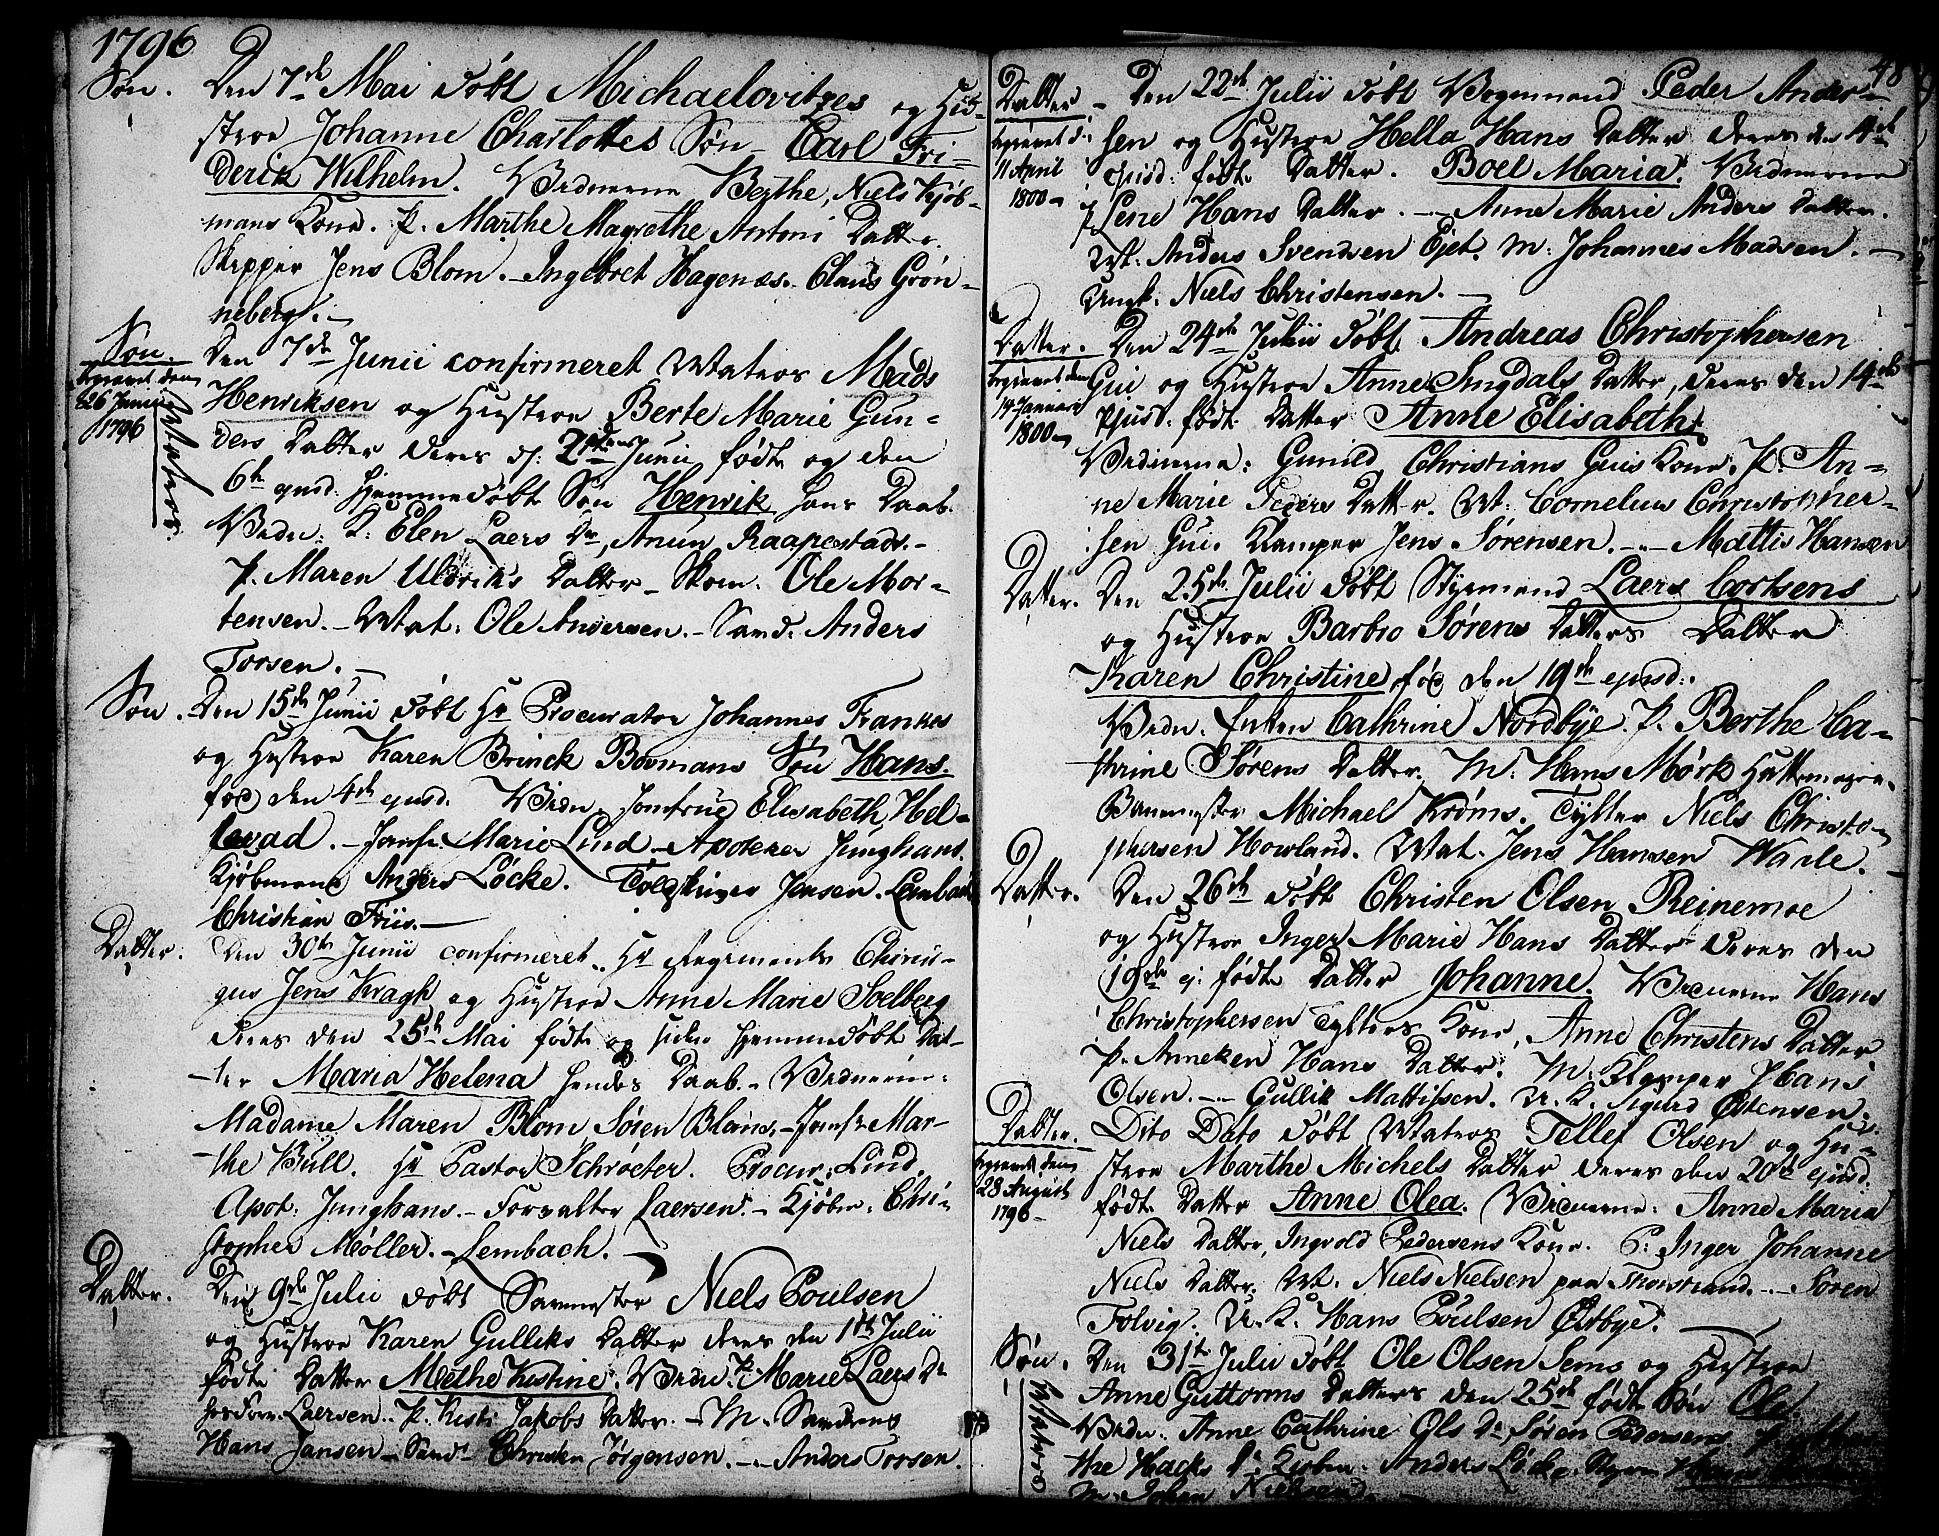 1796
Søn. Den 7de Mai døbt Michaelovitzes og Hu-
stroe Johanne Charlottes Søn - Carl Fri-
derik Wilhelm. Vidnerne Berthe, Niels Kjøb-
mans Kone. P. Marthe Magrethe Antoni Datter.
Skipper Jens Blom. Ingebret Hagenæs. Claus Grøn-
neberg.
Søn.
begravet den
26 Junii
1796
Matros
Den 7de Junii confirmeret Matros Mads
Henriksen og Hustroe Berte Marie Gun-
ders Datter deres d: 2den Junii født og den
6te ejusd. hjemmedøbt Søn Henrik hans Daab.
Vidn: K: Elen Laers Dr, Anun Raapestads.
P. Maren Uldriks Datter - Skom. Ole Mor-
tensen. - Mat: Ole Andersen. - Sand. Anders
Torsen.
Søn. Den 15de Junii døbt Hr Procurator Johannes Frankes
og Hustroe Karen Brinck Bovmans Søn Hans.
fød den 4de ejusd. Vidn. Jomfrue Elisabeth Hel-
levad. - Jomfr. Marie Lind - Apoteker Junghans.
Kjøbmand Anders Løcke. Jensen. Lembach
Christian Friis.
Datter. Den 30te Junii confirmeret Hr Regiments Chirur-
gus Jens Kragh og Hustroe Anne Marie Soelberg
deres den 25de Mai født og siden hjemmedøbt Dat-
ter Maria Helena hendes Daab. - Vidnerne:
Madame Maren Blom Søren Bloms. - Jomfr. Mar-
the Bull. Hr Pastor Schrøeter. Procur: Lind.
Apot: Junghans. - Forvalter Laersen. - Kjøbm: Chri-
stopher Møller. - Lembach.
Datter. Den 9de Julii døbt Niels Poulsen
og Hustroe Karen Gulliks Datter deres den 1ste Julii
født Datter Methe Kirstine. Vidn. K. Marie Laers Dr
Laersen. P. Kirsti Jakobs Datter. - M.
Hans Jansen - Sand. Christen Jørgensen. - Anders Torsen.
48
Datter
begravet d:
11 April
1800
Den 22de Julii døbt Vognmand Peder Ander-
sen og Hustroe Hella Hans Datter deres den 14de
ejusd: født Datter. Boel Maria. Vidnerne
Lene Hans Datter. - Anne Marie Anders Datter.
Mt: Anders Svendsen Ejet. M: Johannes Madsen. -
Ungk: Niels Christensen.
Datter.
begravet den
14 Januari
1800
Den 24de Julii døbt Andreas Christophersen
Gui og Hustroe Anne Ingdals Datter, deres den 14de
ejusd. født Datter Anne Elisabeth.
Vidnerne: Gunild Christians Guis Kone. P. An-
ne Marie Peders Datter. Mt: Cornelius Christopher-
sen Gui. Klamper Jens Sørensen. - Mattis Hansen
Datter. Den 25de Julii døbt Styrmand Laers Corksens
og Hustroe Barbro Sørens Datters Datter
Karen Christine fød den 19de ejusd:
Vidn. Enken Cathrine Nordbye. P. Berthe Ca-
thrine Sørens Datter. M: Hans Mørk Hattemager.
Michael Krøms. Tylter Niels Christo-
phersen Howland. Mat. Jens Hansen Warle.
Datter. Den 26de døbt Christen Olsen Reinemoe
og Hustroe Inger Marie Hans Datter deres den
19de ej: født Datter Johanne. Vidnerne Hans
Christophersen Tylters Kone, Anne Christens Datter
P. Anneken Hans Datter. M: Klamper Hans
Olsen. - Gullik Mattissen. U. K. Sigurd Østensen.
Datter.
begravet den
28 August
1796
Dito Dato døbt Matros Tellef Olsen og Hu-
stroe Marthe Michels Datter deres den 20de ejusd.
født Datter Anne Olea. Vidnerne: Anne Maria
Niels Datter, Ingvold Pedersens Kone. P: Inger Johanne
Niels Datter. Mt. Niels Nielsen paa Thorstrand. - Søren
Folvig. U. K. Hans Poulsen Østbye.
Søn.
Matros
Den 31te Julii døbt Ole Olsen Sems og Hustroe
Anne Guttorms Datters den 25de født Søn Ole.
Vidn: Anne Cathrine Ols Dr Søren Pedersens
the Hacks Dr Anders Løcke.
M. Johan Nielsen